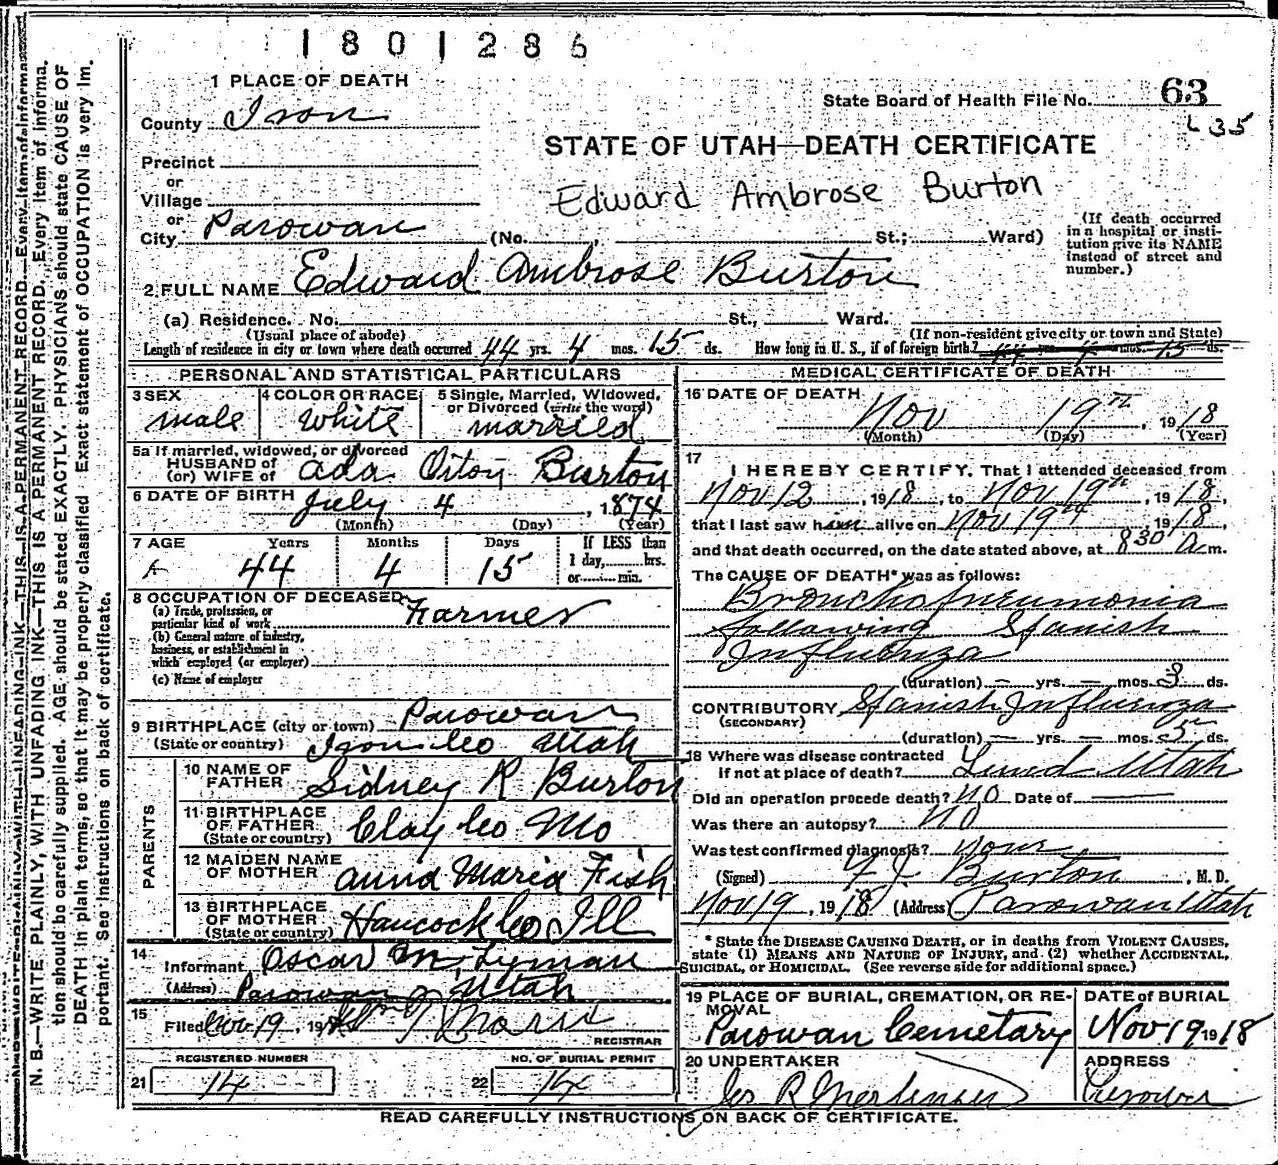 1801286
1 PLACE OF DEATH
State Board of Health File No. 63
County Iron
L 35
STATE OF UTAH—DEATH CERTIFICATE
Precinct
or
Village
Edward Ambrose Burton
or
City Parowan (No. , St.; Ward)
(If death occurred in a hospital or insti-
tution give its NAME
instead of street and
number.)
2 FULL NAME Edward Ambrose Burton
(a) Residence. No. St., Ward.
(Usual place of abode) (If non-resident give city or town and State)
Length of residence in city or town where death occurred 44 yrs. 4 mos. 15 ds. How long in U. S., if of foreign birth? 44 yrs. 4 mos. 15 ds.
PERSONAL AND STATISTICAL PARTICULARS
3 SEX 4 COLOR OR RACE 5 Single, Married, Widowed,
or Divorced (write the word)
male White married
5a If married, widowed, or divorced
HUSBAND of
(or) WIFE of Ada Burton
6 DATE OF BIRTH July 4, 1874
(Month) (Day) (Year)
7 AGE Years Months Days If LESS than
1 day, hrs.
or min.
44 4 15
8 OCCUPATION OF DECEASED
(a) Trade, profession, or
particular kind of work Farmer
(b) General nature of industry,
business, or establishment in
which employed (or employer)
(c) Name of employer
9 BIRTHPLACE (city or town) Parowan
(State or country) Iron Co Utah
PARENTS
10 NAME OF
FATHER Sidney R Burton
11 BIRTHPLACE
OF FATHER
(State or country) Clay Co Mo
12 MAIDEN NAME
OF MOTHER Anna Maria Fish
13 BIRTHPLACE
OF MOTHER
(State or country) Hancock Co Ill
14
Informant Oscar M Lyman
(Address) Parowan Utah
15
Filed Nov 19, 19
REGISTRAR
REGISTERED NUMBER NO. OF BURIAL PERMIT
21 14 22 14
MEDICAL CERTIFICATE OF DEATH
16 DATE OF DEATH
Nov 19th, 1918
(Month) (Day) (Year)
17
I HEREBY CERTIFY, That I attended deceased from
Nov 12, 1918, to Nov 19th, 1918,
that I last saw him alive on Nov 19th 1918,
and that death occurred, on the date stated above, at 8 30 A m.
The CAUSE OF DEATH* was as follows:
Broncho pneumonia
following Spanish
Influenza
(duration) — yrs. — mos. 3 ds.
CONTRIBUTORY Spanish Influenza
(SECONDARY)
(duration) — yrs. — mos. 5 ds.
18 Where was disease contracted
if not at place of death? Lund Utah
Did an operation procede death? No Date of
Was there an autopsy? No
Was test confirmed diagnosis?
(Signed) Burton, M. D.
Nov 19, 1918 (Address) Parowan Utah
* State the DISEASE CAUSING DEATH, or in deaths from VIOLENT CAUSES,
state (1) MEANS AND NATURE OF INJURY, and (2) whether ACCIDENTAL,
SUICIDAL, or HOMICIDAL. (See reverse side for additional space.)
19 PLACE OF BURIAL, CREMATION, OR RE-
MOVAL
Parowan Cemetary
DATE of BURIAL
Nov 19 1918
20 UNDERTAKER
R Mortensen
ADDRESS
Parowan
READ CAREFULLY INSTRUCTIONS ON BACK OF CERTIFICATE.
N. B.—WRITE PLAINLY, WITH UNFADING INK—THIS IS A PERMANENT RECORD. Every item of informa-
tion should be carefully supplied. AGE should be stated EXACTLY. PHYSICIANS should state CAUSE OF
DEATH in plain terms, so that it may be properly classified. Exact statement of OCCUPATION is very im-
portant. See instructions on back of certificate.